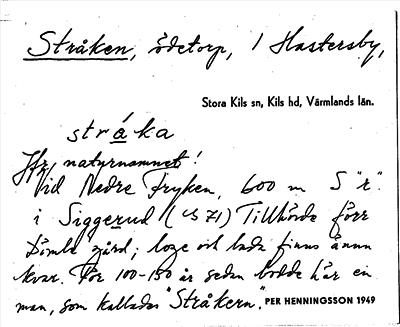 Stråken, ödetorp, i Hastersby,
Stora Kils sn, Kils hd, Värmlands län.
stråka
Jfr naturnamnet!
Vid Nedre Fryken, 600 m S "r"
i Siggerud (LS 71) Tillhörde förr
Tömla gård; loge och lada finns ännu
kvar. För 100-150 år sedan bodde här en
man, som kallades "Stråkern". PER HENNINGSSON 1949